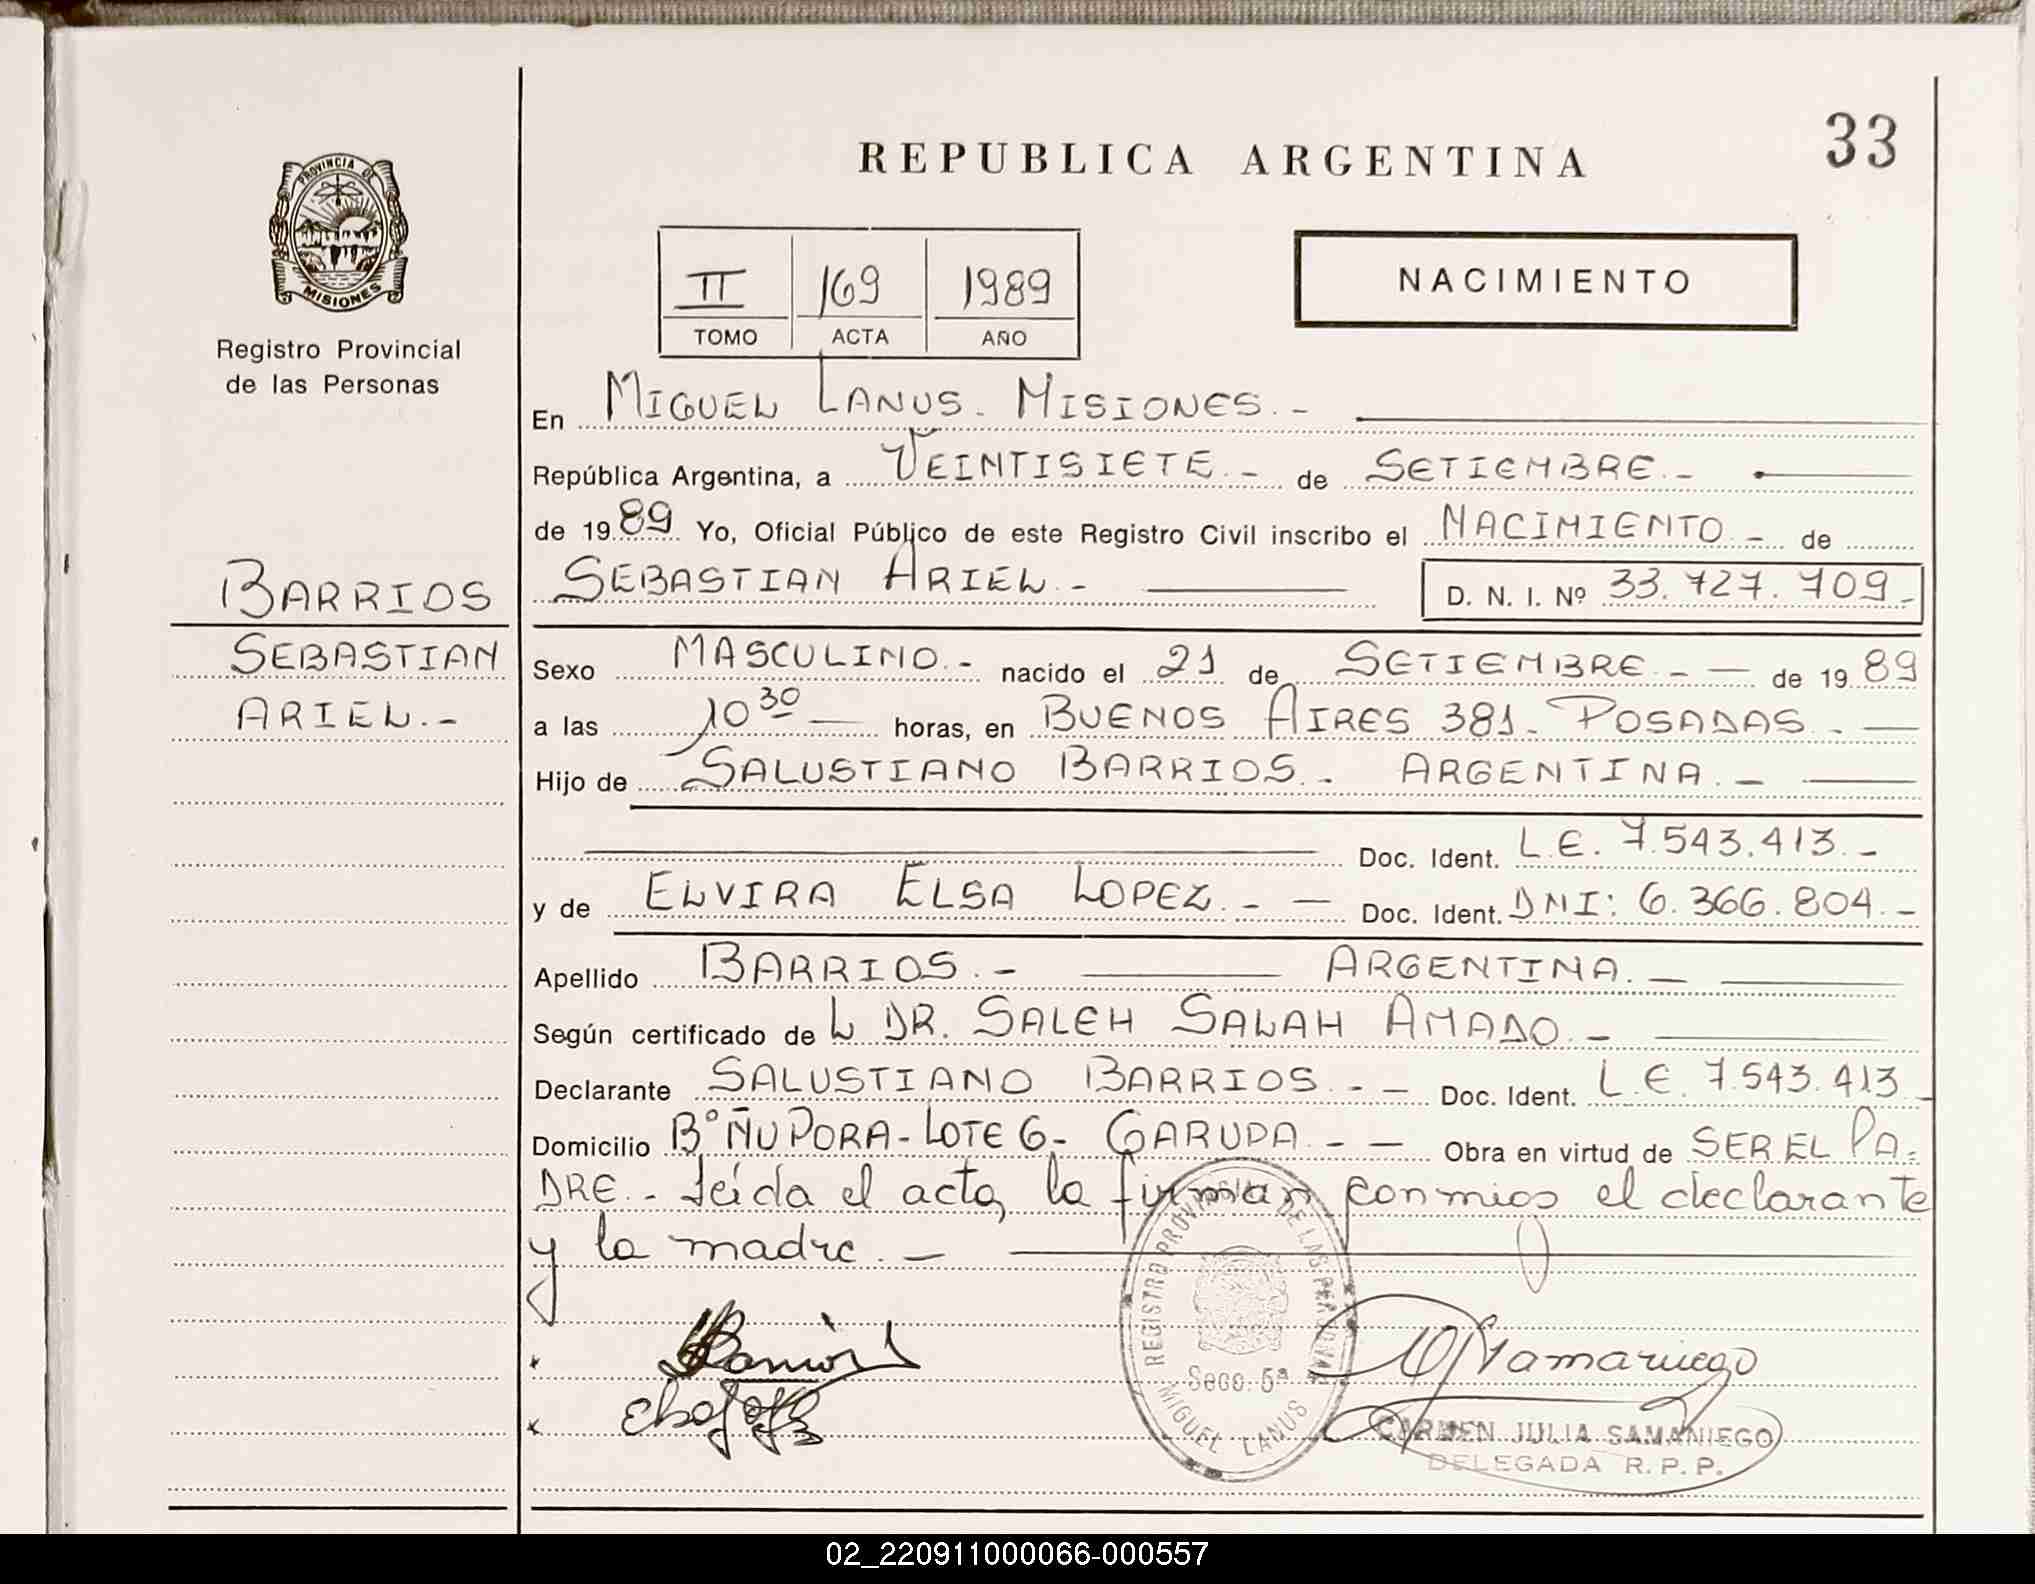 REPUBLICA ARGENTINA
33
PROVINCIA DE
MISIONES
Registro Provincial
de las Personas
II 169 1989
TOMO ACTA AÑO
NACIMIENTO
En MIGUEL LANUS. MISIONES.-
República Argentina, a VEINTISIETE.- de SETIEMBRE.-
de 1989 Yo, Oficial Público de este Registro Civil inscribo el NACIMIENTO - de
BARRIOS
SEBASTIAN
ARIEL.-
SEBASTIAN ARIEL.- D. N. I. Nº 33.727.709-
Sexo MASCULINO.- nacido el 21 de SETIEMBRE.- - de 1989
a las 10 30 horas, en BUENOS AIRES 381. POSADAS.-
Hijo de SALUSTIANO BARRIOS. ARGENTINA.-
Doc. Ident. L.E. 7.543.413.-
y de ELVIRA ELSA LOPEZ.- - Doc. Ident. DNI: 6.366.804.-
Apellido BARRIOS.- ARGENTINA.-
Según certificado de L DR. SALEH SALAH AMADO.-
Declarante SALUSTIANO BARRIOS.- - Doc. Ident. L.E. 7.543.413-
Domicilio Bº ÑU PORA-LOTE 6- GARUPA.- - Obra en virtud de SER EL PA=
DRE.- Leída el acta, la firman conmigo el declarante
y la madre.-
REGISTRO PROVINCIAL DE LAS PERSONAS
Secc. 5ª
MIGUEL LANUS
CARMEN JULIA SAMANIEGO
DELEGADA R. P. P.
02_220911000066-000557